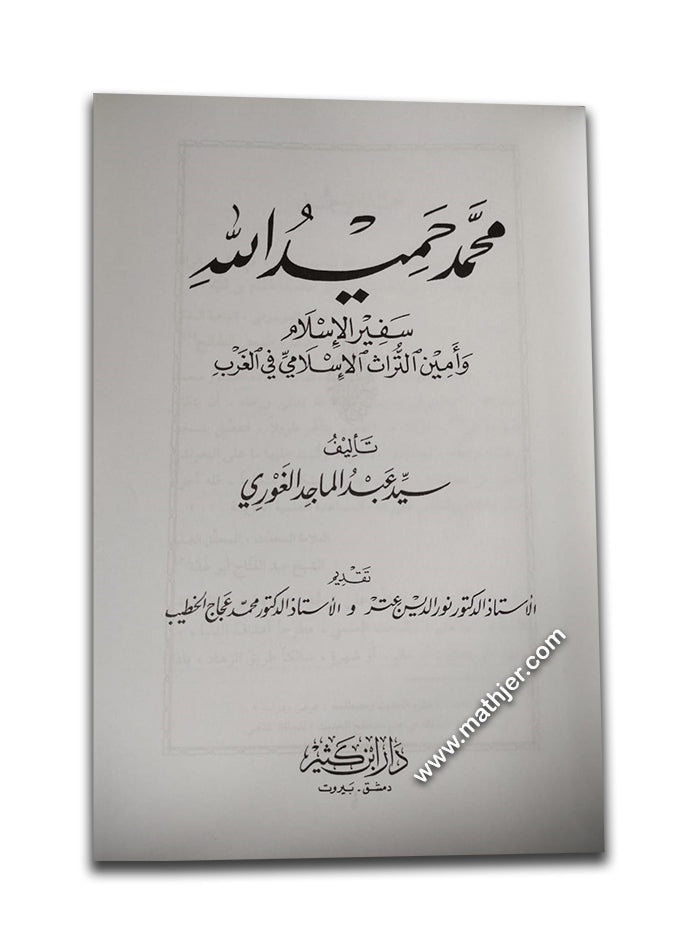 محمَّد حَمِيْدُ اللهِ
سَفِيْر الإِسْلَام
وَأَمِيْن التُّراث الإِسْلَاميِّ في الغَرْبِ
تَأْلِيْفُ
سيِّد عَبْدُ الماجِد الغَوْرِي
تَقْدِيْم
الأستاذ الدكتور نور الدين عتر و الأستاذ الدكتور محمّد عجاج الخطيب
www.mathjer.com
دَارُ ابْن كَثِيْر
دمشق - بَيروت